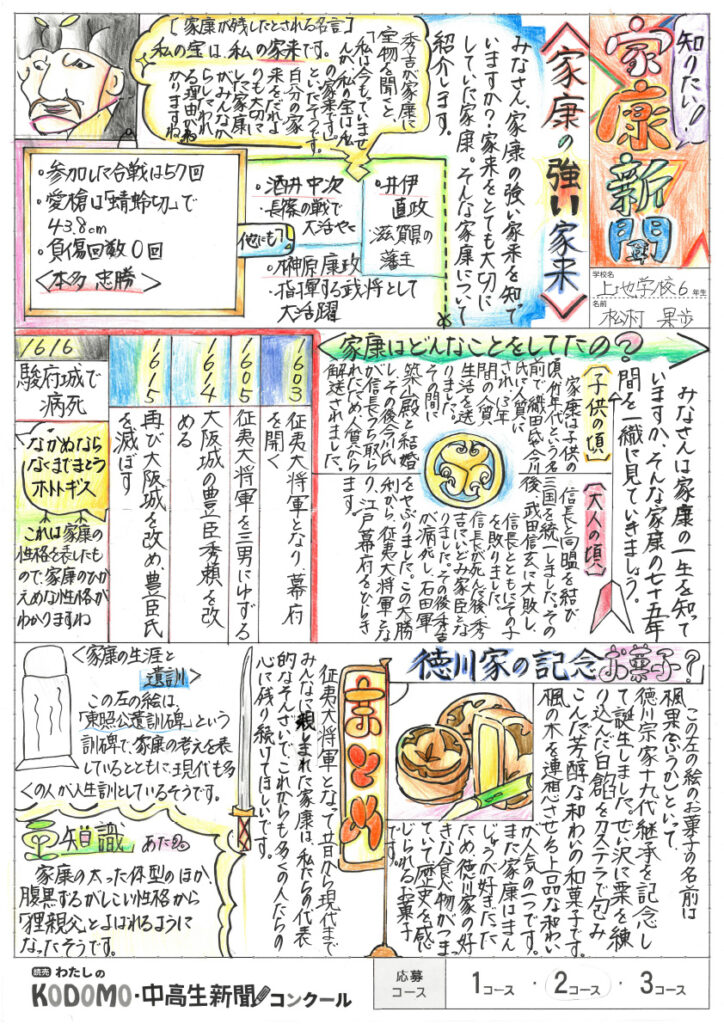 知りたい!!
家康新聞
学校名
上地学校6年生
名前
松村 果歩
〈家康の強い家来〉
みなさん、家康の強い家来を知て
いますか?家来をとても大切に
していた家康。そんな家康について
紹介します。
[家康が残したとされる名言]
私の宝は、私の家来です。
秀吉が家康に
宝物を聞くと、
「私は今もっていませ
んが、私の宝は、私
の家来です」
といたそうです。
自分の家
来をだれよ
りも大切に
した家康。
がみんなか
らしたわれ
る理由がわ
かりますね
・井伊
直政
滋賀県の
藩主
・酒井忠次
・長篠の戦で
大活やく
・榊原康政
・指揮する武将として
大活躍
他にも?
・参加した合戦は57回
・愛槍は「蜻蛉切」で
43.8cm
・負傷回数0回
〈本多 忠勝〉
家康はどんなことをしてたの?
みなさんは家康の一生を知って
いますか、そんな家康の七十五年
間を一緒に見ていきましょう。
子供の頃
家康は子供の
頃、竹千代という名
前で織田氏、今川
氏に人質に
され、13年
間の人質
生活を送
りました。
その間に
築山殿と結婚
し、その後今川氏
が信長にうち取ら
れたため、人質から
解送されました。
大人の頃
信長と同盟を結び
三国を統一しました。その
後、武田信玄に大敗し、
信長とともにその子
を敗りました。
信長が死んだ後、秀
吉にいどみ家臣とな
りました。その後秀吉
が病死し、石田軍
をやぶりました。この大勝
利から、征夷大将軍とな
り、江戸幕府をひらき
ます。
1603
征夷大将軍となり、幕府
を開く
1605
征夷大将軍を三男にゆずる
1614
大阪城の豊臣秀頼を改
める
1615
再び大阪城を改め、豊臣氏
を滅ぼす
1616
駿府城で
病死
なかぬなら
なくまでまとう
ホトトギス
これは家康の
性格を表したも
ので、家康のひか
えめな性格が
わかりますね
徳川家の記念お菓子?
この左の絵のお菓子の名前は
楓果(ふうか)といって
徳川宗家十九代継承を記念し
て誕生しました。ぜい沢に栗を練
り込んだ白餡をカステラで包み
こんだ芳醇な味わいの和菓子です。
楓の木を連想させる上品な味わい
が人気の一つです。
また家康はまん
じゅうが好きだった
ため徳川家の好
きな食べ物がつまっ
ていて歴史を感
じられるお菓子
です。
まとめ
征夷大将軍となって廿日から現代まで
みんなに親しまれた家康は、私たちの代表
的なそんざいで、これからも多くの人たちの
心に残り続けてほしいです。
〈家康の生涯と
遺訓〉
この左の絵は、
「東照公遺訓碑」という
訓碑で、家康の考えを表
しているとともに、現代も多
くの人が人生訓としているそうです。
豆知識
あだ名
家康の太った体型のほか、
腹黒するがしこい性格から
「狸親父」とよばれるように
なったそうです。
読売 わたしの
KODOMO・中高生新聞コンクール
応募
コース
1コース ・ 2コース ・ 3コース